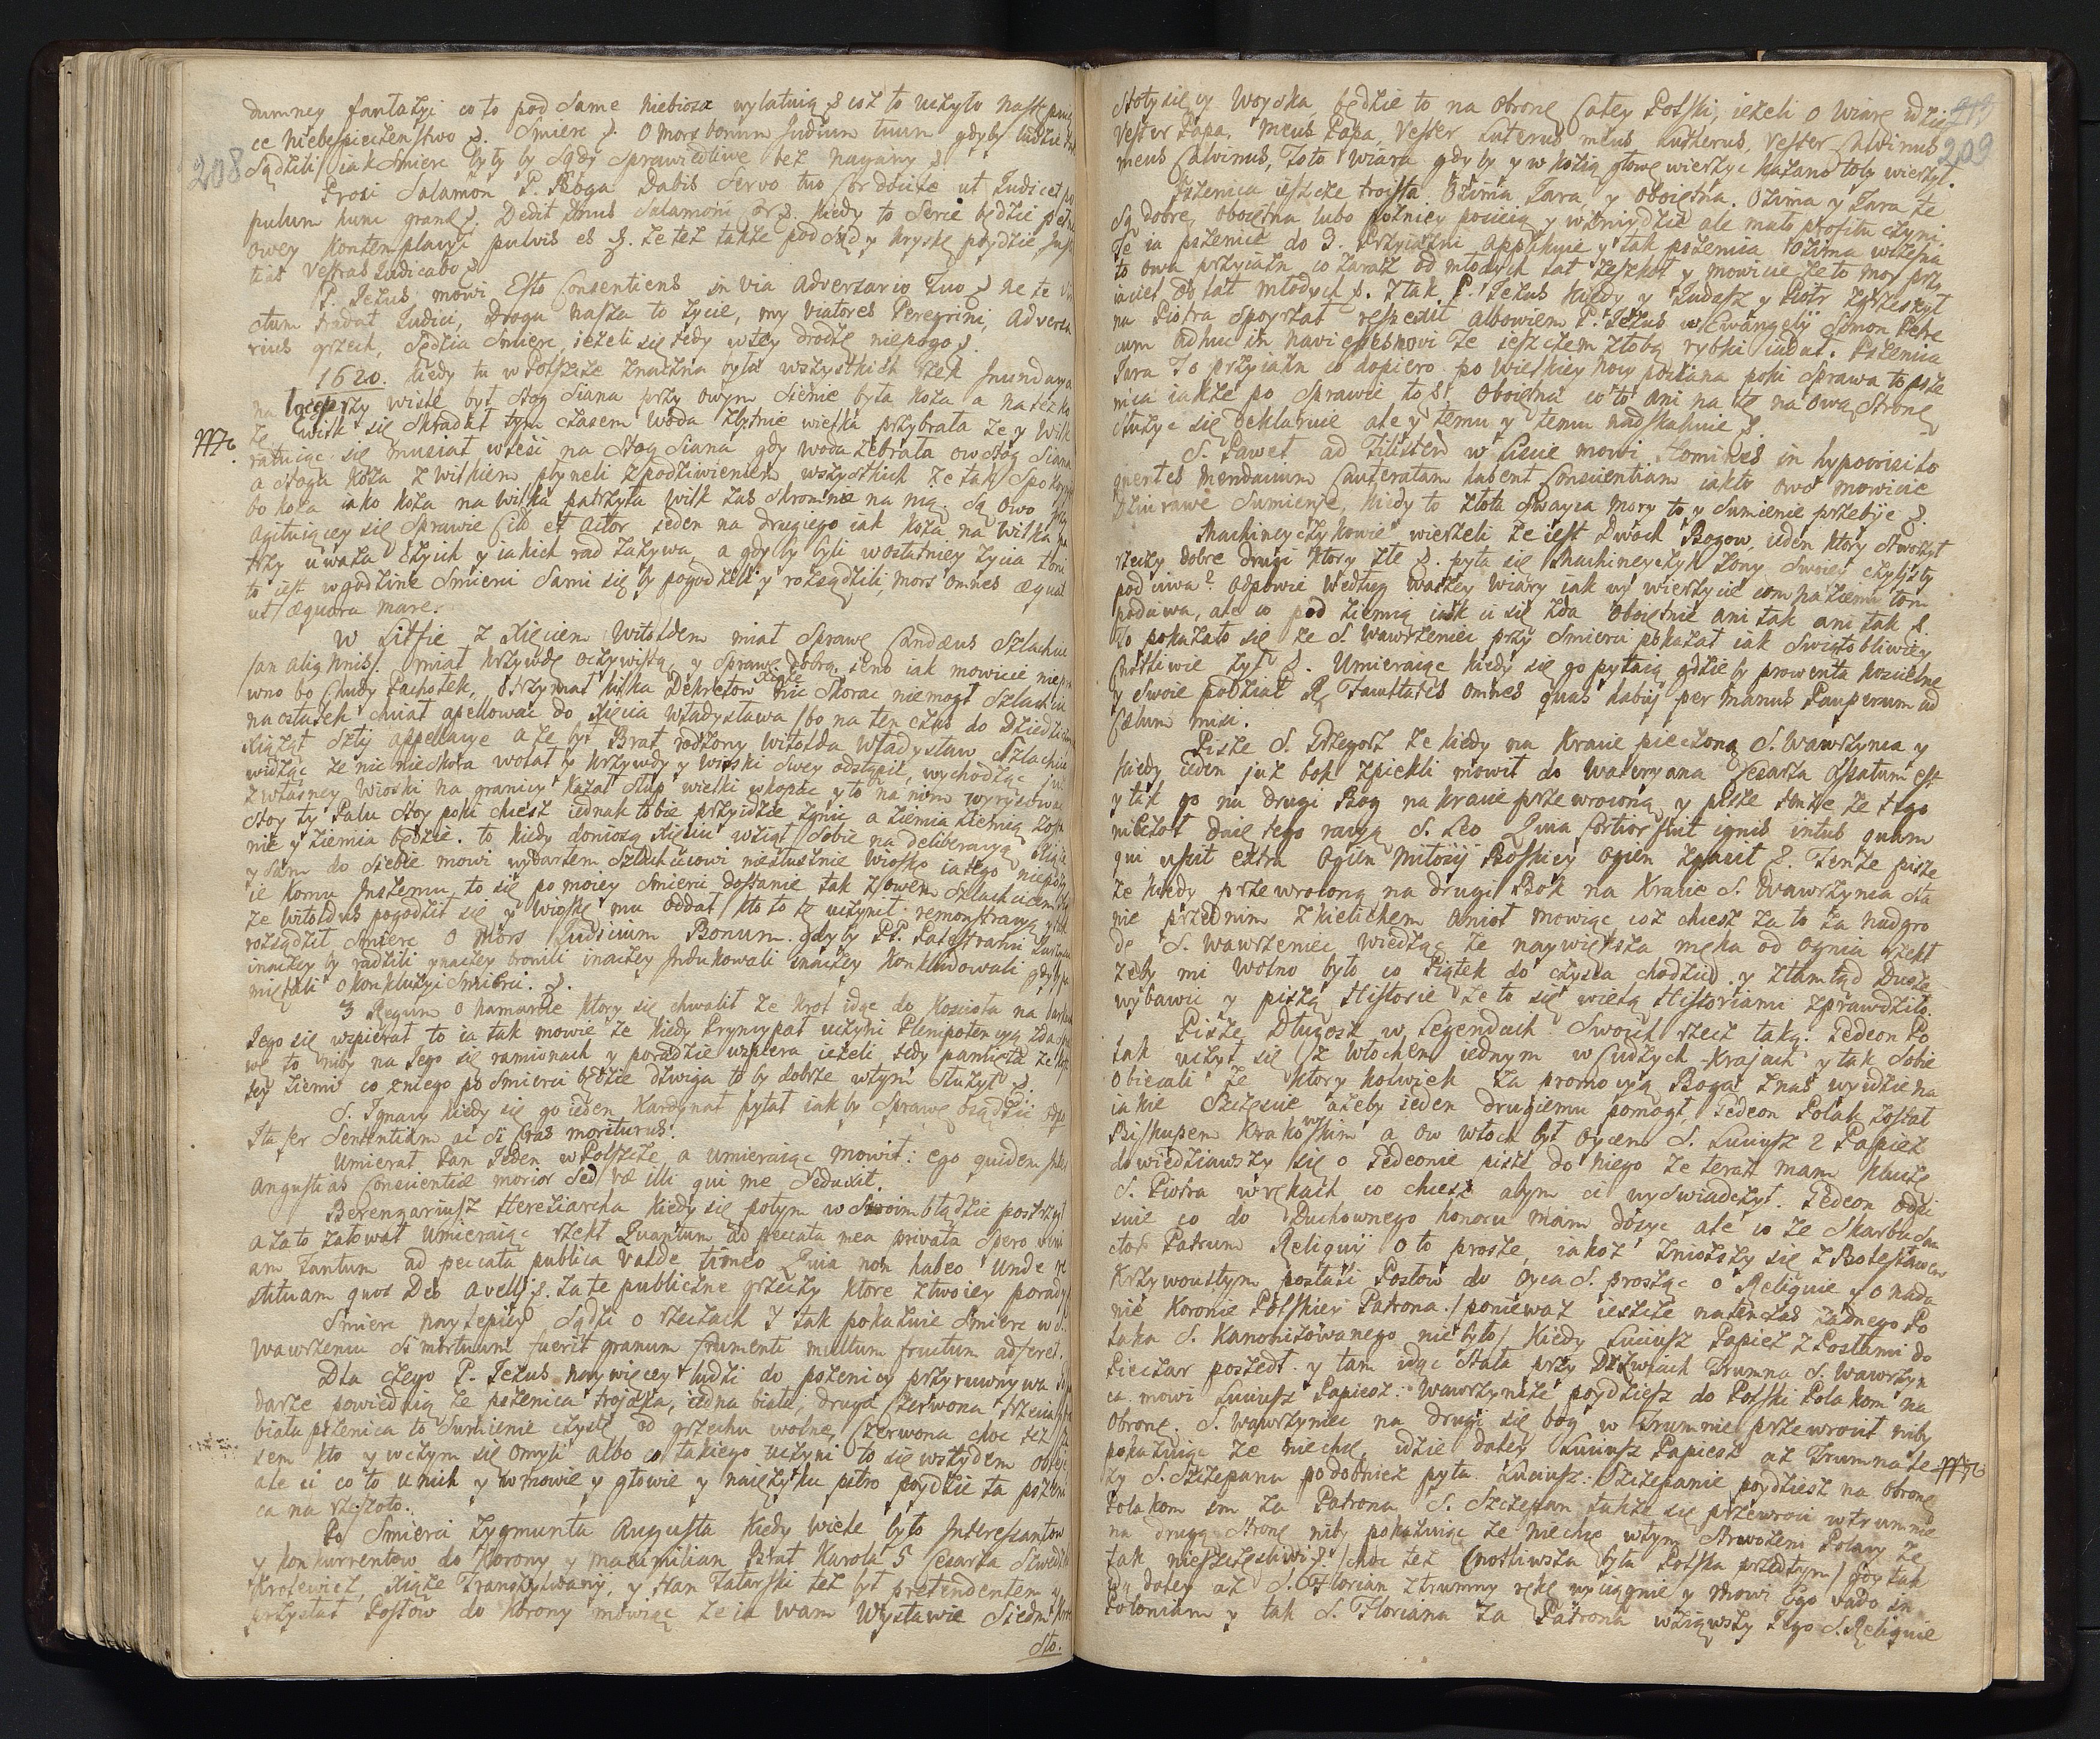 208
dumney fantazyi co to pod same niebiosa wylatuią § coż to uczyto
ce niebespieczenstwo §. Smierc §. O mors bonum Judicium tuum gdyby ludzie
sądzili iak Smierc byty by sądy sprawiedliwe bez nagany §
Prosi Salamon P. Boga Dabis Servo tuo Cor docile ut Judicet po
pulum hunc grandę §. Dedit Dnus Salamoni Cor §. kiedy to Serce będzie pełne
owey kontemplacyi pulvis es §. ze też także pod sąd y kryskę poydzie, Justi
tias vestras Judicabo §
P. Jezus mowi Esto Consentiens in via Adversario Tuo § ne te
ctum tradat Judici, Droga nasza to zycie, my viatores Peregrini, Adversa
rius grzech, Sędzia Smierc, iezeli się tedy w tey drodze niepogo §.
1620. kiedy tu w Polszcze znaczna była wszystkich rzek Inundacya
na przy wisle był stog siana przy owym sienie była koza a na tę ko
zę wilk się skradał tym czasem woda zbytnie wielka przybrała ze y wilk
ratuiąc się musiał wleść na stog siana gdy woda zebrała ow stog siana
a stogu koza z wilkiem płyneli z podziwieniem wszystkich ze tak spokoynie
bo koza iako koza na wilka patrzyła wilk zas skromnie na nią. Są owo przy
agituiącey się sprawie Cit et Actor ieden na drugiego iak koza na wilka pa
trzy uważa czyich y iakich rad zazywa, a gdyby byli w ostatniey życia toni
to iest w godzinę smierci sami się by pogodzili y rozsądzili, mors omnes æquat
ut æquora mare.
W Litfie z Xięciem Witoldem miał Sprawę Candæus Szlachcic
/an alig hnis/. miał krzywdę oczywistą, y Sprawę dobrą, ieno iak mowicie niepe
wno bo Chudy Pachołek, otrzymał kilka Dekretow Xiąże nic skorac niemogł Szlachcic
na ostatek chciał apellowac do Xięcia Władysława /bo na ten czas do Dziedzi
Xiążąt szły appellacye a ze był Brat rodzony Witolda Władysław Szlachcic
widząc ze nic nie skora wolał y krzywdy y wioski swey odstąpił, wychodząc już
z własney wioski na granicy kazał słup wielki wkopac y to na nim wyrysować
stoy ty Palu stoy poki chcesz iednak tobie przyidzie zginąć, a ziemia ziemią zosta
nie y ziemia będzie. to kiedy doniosą Xięciu wziął sobie na deliberacyą Xiąże
y sam do siebie mowi wydarłem Szlachcicowi niesłusznie wioskę ia tego niepoży
ie komu Inszemu to się po moiey smierci dostanie tak z owem Szlachcicem Xią
ze Witoldus pogodził się y wioskę mu oddał /kto to tę uczynił remonstracyą y tak
rozsądził Smierc O Mors Judicium Bonum. gdyby PP. Palestranci Jurystowie
inaczey by radzili ynaczey bronili inaczey Indukowali inaczey konkludowali gdyby pa
miętali o konkluzyi Smierci. §.
3 Regum o Namanie ktory się chwalił ze krol idąc do kosciola na barkach
Jego się wspierał to ia tak mowie ze kiedy Pryncypał uczyni Plenipotencyą zda spra
wę to niby na Jego się ramionach y poradzie wspiera iezeli tedy pamięta ze kopiec
tey ziemi co z niego po smierci będzie dzwiga to by dobrze w tym służył §.
S. Ignacy kiedy się go ieden Kardynał pytał iak by sprawę osądzić odpo
Ita fer sententiam ac si Cras moriturus.
Umierał Pan Jeden w Polszcze a umieraiąc mowił: ego quidem Inter
angustias Conscientiæ morior sed væ illi qui me seduxit.
Berengariusz Hereziarcha kiedy się potym w swoim błądzie postrzygł
a za to załował umieraiąc rzekł Quantum ad peccata mea privata spero veni
am tantum ad peccata publica valde timeo Quia non habeo unde re
stituam quos Deo avelli §. za te publiczne grzechy ktore z twoiey porady
Smierc naylepiey Sądzi o rzeczach I tak pokazuie smierc w S.
Wawrzencu Si mortuum fuerit granum frumenti multum fructum adferet.
Dla czego P. Jezus naywięcey ludzi do pszenicy przyrownywa Gospo
darze powiedaią ze pszenica trojaka, iedna biała, druga Czerwona trzecia
biała pszenica to Sumienie czyste od grzechu wolne, Czerwona choc też cza
sem kto y w czym się omyli albo co takiego uczyni to się wstydem obleie
ale ci co to u nich y w mowie y głowie y na ięzyku pstro poydzie ta pszeni
ca na rzeszoto.
Po Smierci Zygmunta Augusta kiedy wiele było Interessantow
y konkurrentow do Korony y Maximilian Brat Karola 5 Cesarza Szwedzki
Krolewicz, Xiąże Transylwanij, y Han Tatarski też był pretendentem y
przysłał Posłow do Korony mowiąc ze ia wam wystawie siedmkroc
sto.
209
Stotysięcy woyska będzie to na obronę Całey Polski, iezeli o wiarę idzie
Vester Papa, meus Papa, Vester Luterus meus Lutherus, Vester Calvinus
meus Calvinus, Toto wiara gdyby y w kozią głowę wierzyc kazano toby wierzył.
Pszenica ieszcze troista Ozima Jara, y Oboiętna. Ozima y Jara te
są dobre, oboiętna lubo pozniey posieią y w zmiydzie ale mało profitu czyni.
Te ia pszenice do 3. Przyiazni applikuie y tak pszenica Ozima wczesna
to owa przyiazn co zaraz od młodych lat zeszkoł y mowicie ze to moy przy
iaciel od lat młodych §. I tak P. Jezus kiedy y Judasz y Piotr zgrzeszył
na Piotra spoyrzał respexit albowiem P. Jezus w Ewangelij Simon Petre
cum adhuc in navi esses mowi ze ieszczem z tobą rybki iadał. Pszenica
Jara to przyiazn co dopiero po wielkiey nocy posiana poki sprawa to psze
nica iakże po sprawie to §. Oboiętna co to ani na tę na owę stronę
służyc się deklaruie ale y temu y temu nadskakuie §.
S. Paweł ad Filisteos w Liscie mowi Homines in hypocrisi lo
quentes mendacium Cauteratam habent Conscientiam iakto owo mowicie
Dziurawe Sumienie, kiedy to złota Szwayca Mory to y sumienie przebije §.
Machineyczykowie wierzeli ze iest Dwoch Bogow, ieden ktory stworzył
rzeczy dobre drugi ktory złe §. pyta się Machineyczyk żony swoiey czyliżty
poduiwa? odpowie Według waszey wiary iak wy wierzycie com na ziemi tom
poduwa, ale co pod ziemią iak ci się zda Oboiętnie ani tak ani tak §.
to pokazało się ze S. Wawrzeniec przy Smierci pokazał iak Swiętobliwiey
Cnotliwie żył §. Umieraiąc kiedy się go pytaią gdzie by prowenta koscielne
y swoie podział R. Facultates omnes quas habui per manus Pauperum ad
Cælum misi.
Pisze S. Grzegorz ze kiedy na Kracie pieczono S. Wawrzynca y
kiedy ieden już bok zpiekli mowił do Waleryana Cesarza Assatum est
y tak go na drugi Bog na kracie przewrocono y pisze tenże ze tego
nieczoł daie tego racyą S. Leo Quia fortior fuit ignis intus quam
qui ussit extra ogien miłosci Boskiey ogien zgasił §. Tenże pisze
ze kiedy przewrocono na drugi Bok na kracie S. Wawrzynca sta
nie przednim z kielichem Anioł mowiąc coż chcesz za to za nadgro
dę S. Wawrzeniec wiedząc ze naywiększa męka od ognia rzekł
żeby mi wolno było co Piątek do czysca chodzić y ztamtąd Dusze
wybawic y piszą Historie ze to się wielą Historiami sprawdziło.
Pisze Długosz w Legendach swoich rzecz taką: Gedeon Po
lak uczył się z włochem iednym w Cudzych krajach y tak sobie
obiecali ze ktory kolwiek za promocyą Boga znas wyidzie na
iakie szczęscie ażeby ieden drugiemu pomogł, Gedeon Polak został
Biskupem Krakowskim a ow włoch był oycem S. Luciusz 2 Papież
dowiedziawszy się o Gedeonie pisze do niego ze teraz mam klucze
S. Piotra w rękach co chcesz abym ci wyswiadczył. Gedeon odpi
suie co do Duchownego honoru mam dosyc ale co ze Skarbu San
ctor Patrum Reliquij o to prosze, iakoż zniosszy się z Bolesławem
Krzywoustym posłali Posłow do oyca S. prosząc o Reliquie y o nada
nie Koronie Polskiey Patrona /poniewaz ieszcze natenczas żadnego Po
laka S. Kanonizowanego nie było/ kiedy Luciusz Papież z Posłami do
Pieczar poszedł y tam idąc stała przy Drzwiach Trumna S. Wawrzyn
ca mowi Luciusz Papiesz: Wawrzyncze poydziesz do Polski Polakom na
Obronę. S. Wawrzyniec na drugi się bog w trumnie przewrocił niby
pokazuiąc ze niechcę, idzie daley Luciusz Papiesz aż Trumna le
ży S. Szczepana podobnież pyta Luciusz: Szczepanie poydziesz na obronę
Polakom im za Patrona S. Szczepan także się przewroci w trumnie
na drugą stronę niby pokazuiąc ze niechcę w tym strwożeni Polacy ze
tak nieszczęsliwi § /choc też Cnotliwsza była Polska przedtym/ gdy tak
idą daley aż S. Florian z trumny rękę wyciągnie y mowi Ego vado in
Poloniam y tak S. Floriana za Patrona wziąwszy Jego S. Reliquie